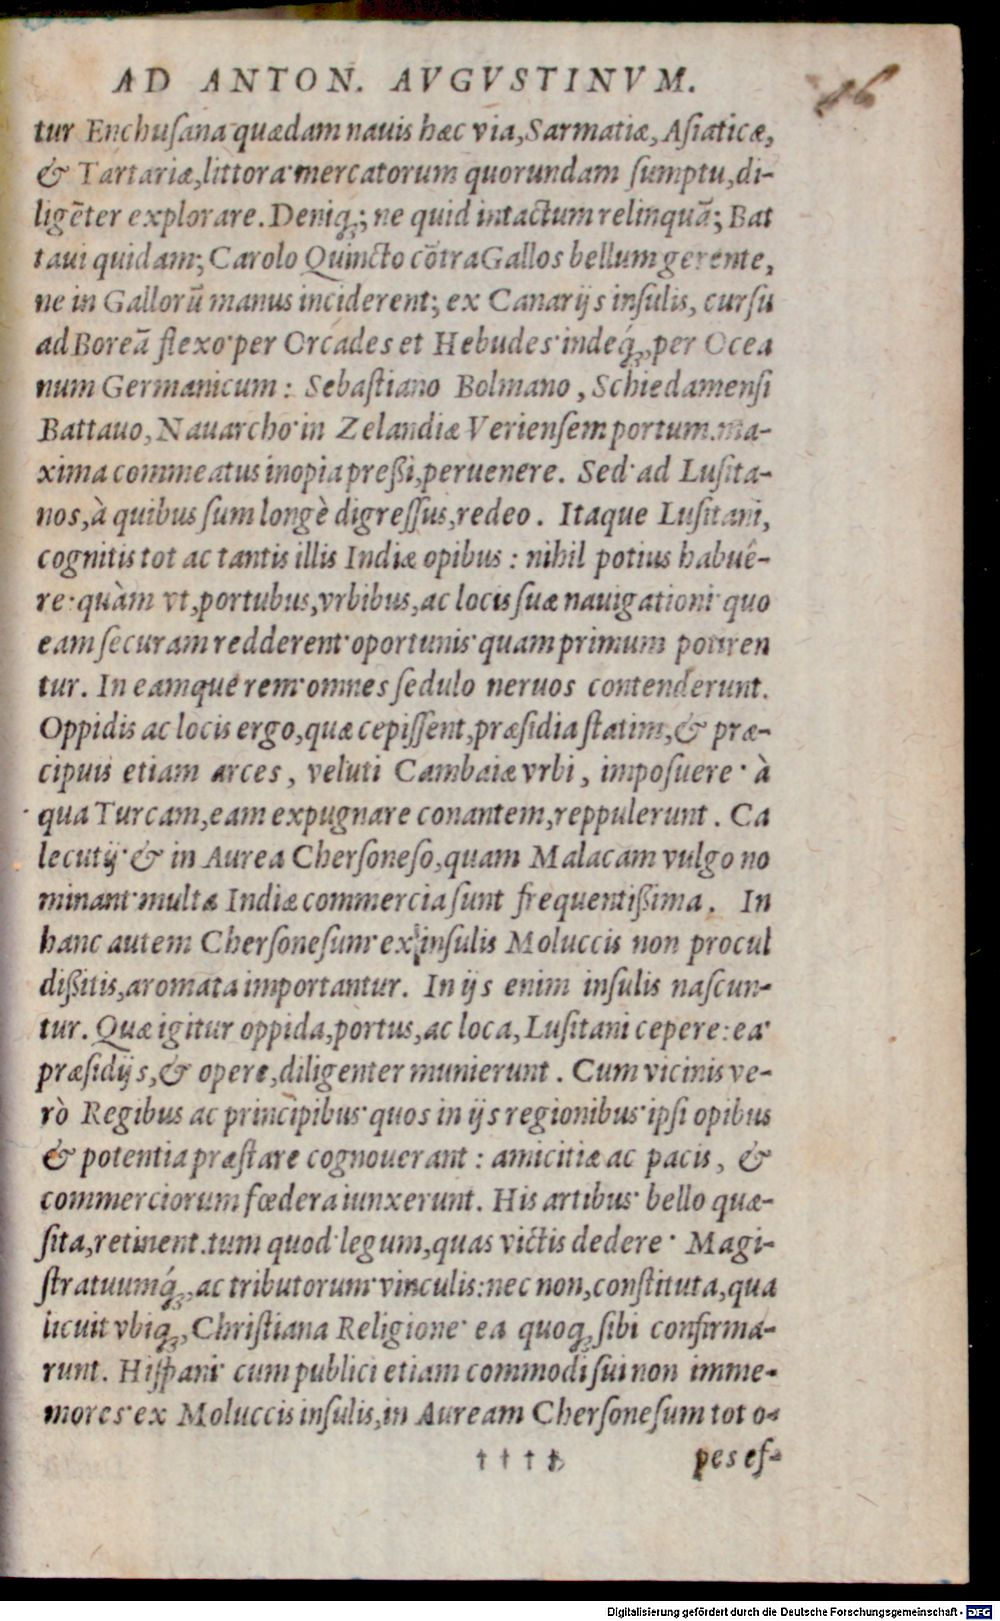 AD ANTON. AVGVSTINVM.
46
tur Enchusana quædam nauis hæc via, Sarmatiæ, Asiaticæ,
& Tartariæ, littora mercatorum quorundam sumptu, di-
ligẽter explorare. Deniq́ꝫ; ne quid intactum relinquã; Bat
taui quidam; Carolo Quincto cõtra Gallos bellum gerente,
ne in Gallorũ manus inciderent; ex Canarijs insulis, cursu
ad Boreã flexo per Orcades et Hebudes indeq́ꝫ, per Ocea
num Germanicum: Sebastiano Bolmano, Schiedamensi
Battauo, Nauarcho in Zelandiæ Veriensem portum. ma-
xima commeatus inopia preßi, peruenere. Sed ad Lusita-
nos, à quibus sum longè digressus, redeo. Itaque Lusitani,
cognitis tot ac tantis illis Indiæ opibus: nihil potius habuê-
re: quàm vt, portubus, vrbibus, ac locis suæ nauigationi quo
eam securam redderent oportunis quamprimum potiren
tur. In eamque rem omnes sedulo neruos contenderunt.
Oppidis ac locis ergo, quæ cepissent, præsidia statim, & præ-
cipuis etiam arces, veluti Cambaiæ vrbi, imposuere· à
qua Turcam, eam expugnare conantem, reppulerunt. Ca
lecutij & in Aurea Chersoneso, quam Malacam vulgo no
minant multa Indiæ commercia sunt frequentißima. In
hanc autem Chersonesum ex insulis Moluccis non procul
dißitis, aromata importantur. In ijs enim insulis nascun-
tur. Quæ igitur oppida, portus, ac loca, Lusitani cepere: ea
præsidijs, & opere, diligenter munierunt. Cum vicinis ve-
rò Regibus ac principibus quos in ijs regionibus ipsi opibus
& potentia præstare cognouerant: amicitiæ ac pacis, &
commerciorum fœdera iunxerunt. His artibus bello quæ-
sita, retinent. tum quod legum, quas victis dedere· Magi-
stratuumq́ꝫ, ac tributorum vinculis: nec non, constituta, qua
licuit vbiqꝫ, Christiana Religione ea quoqꝫ sibi confirma-
runt. Hispani cum publici etiam commodi sui non imme-
mores ex Moluccis insulis, in Auream Chersonesum tot o-
† † † †
pes ef-
Digitalisierung gefördert durch die Deutsche Forschungsgemeinschaft - DFG